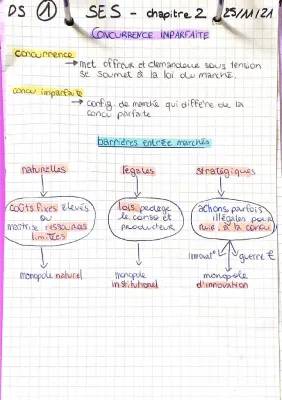 DS 1 SES - chapitre 2 25/11/21
CONCURRENCE IMPARFAITE
concurrence
→ met offreur et demandeur sous tension
se soumet à la loi du marché.
concu imparfaite
→ config. de marché qui diffère de la
concu parfaite
barrières entrée marchés
naturelles légales stratégiques
coûts fixes élevés
ou
maitrise ressources
limitées
lois protège
le conso et
producteur
actions parfois
illégales pour
nuir à la concu
innovat° guerre €
monopole naturel
monopole
institutionnel
monopole
d'innovation